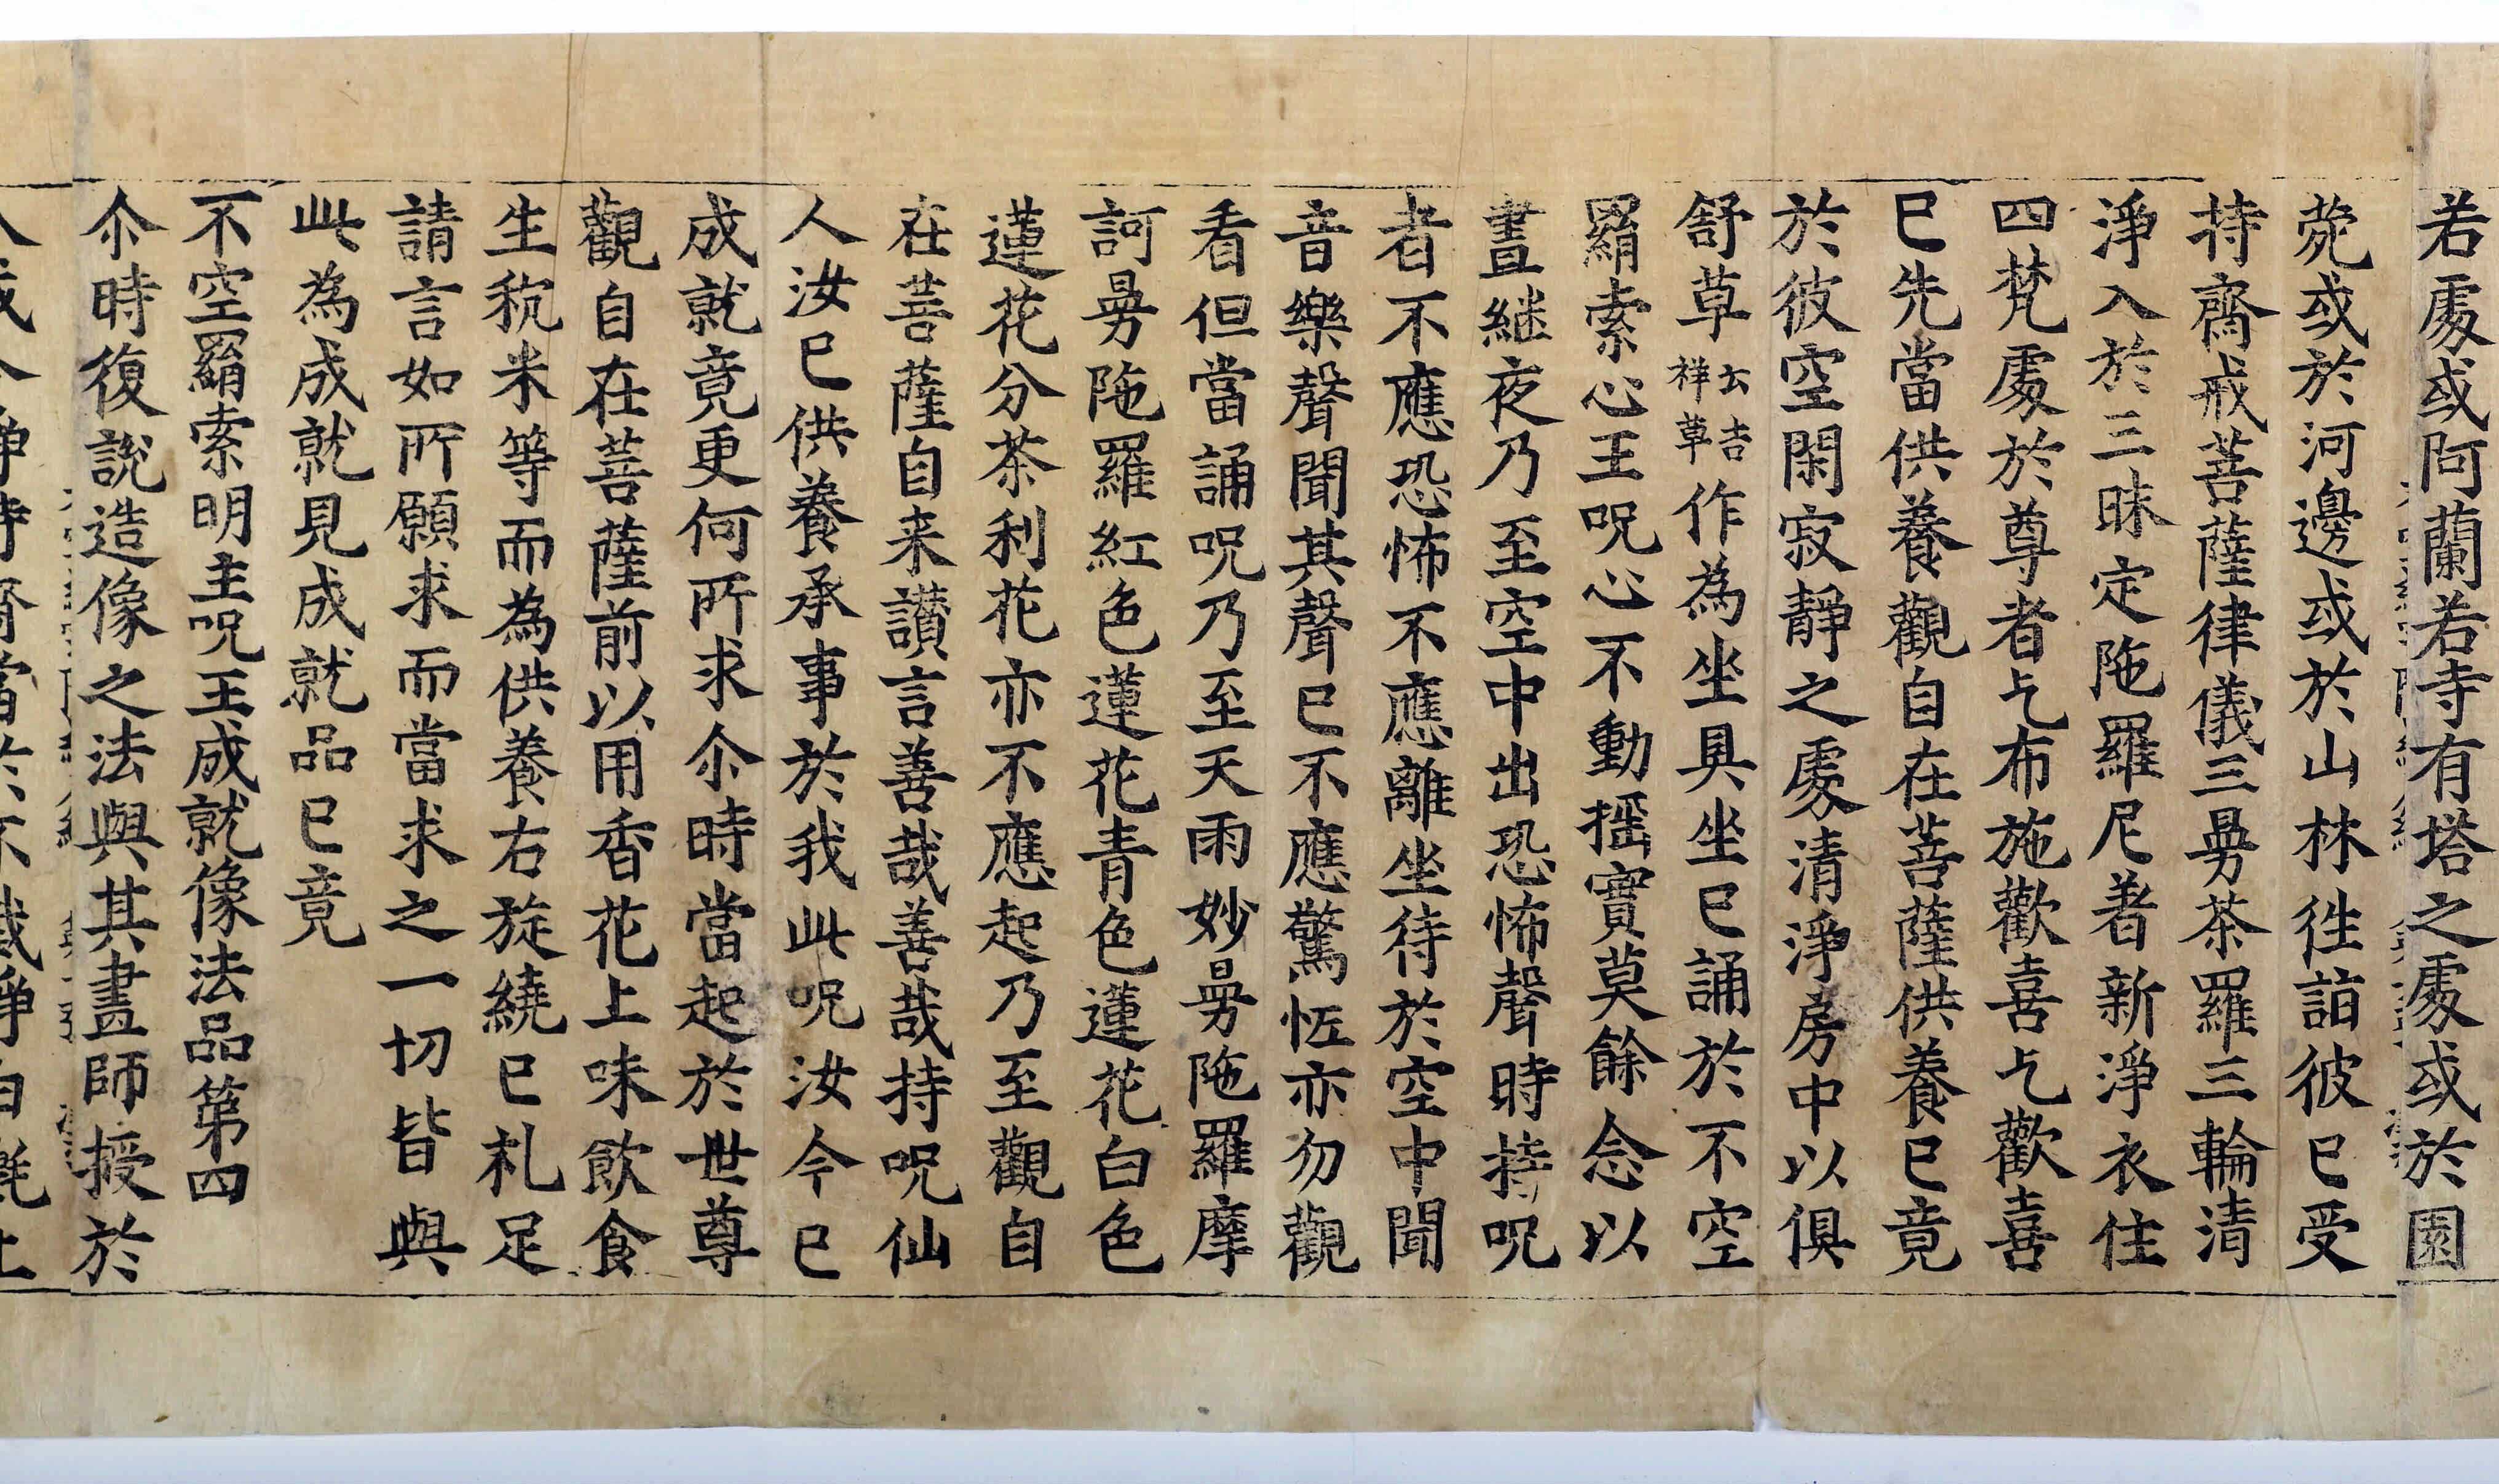 若處或阿蘭若寺有塔之處或於園
菀或於河邊或於山林徃詣彼已受
持齋戒菩薩律儀三曼荼羅三輪清
淨入於三昧定陁羅尼著新淨衣住
四梵處於尊者乞布施歡喜乞歡喜
已先當供養觀自在菩薩供養已竟
於彼空閑寂靜之處清淨房中以俱
舒草云吉祥草作為坐具坐已誦於不空
羂索心王呪心不動摇實莫餘念以
晝継夜乃至空中出恐怖聲時持呪
者不應恐怖不應離坐待於空中聞
音樂聲聞其聲已不應驚恠亦勿觀
看但當誦呪乃至天雨妙曼陁羅摩
訶曼陁羅紅色蓮花青色蓮花白色
蓮花分荼利花亦不應起乃至觀自
在菩薩自来讃言善哉善哉持呪仙
人汝已供養承事於我此呪汝今已
成就竟更何所求尒時當起於世尊
觀自在菩薩前以用香花上味飲食
生秔米等而為供養右旋繞已礼足
請言如所願求而當求之一切皆與
此為成就見成就品已竟
不空羂索明主呪王成就像法品第四
尒時復說造像之法與其畫師授於